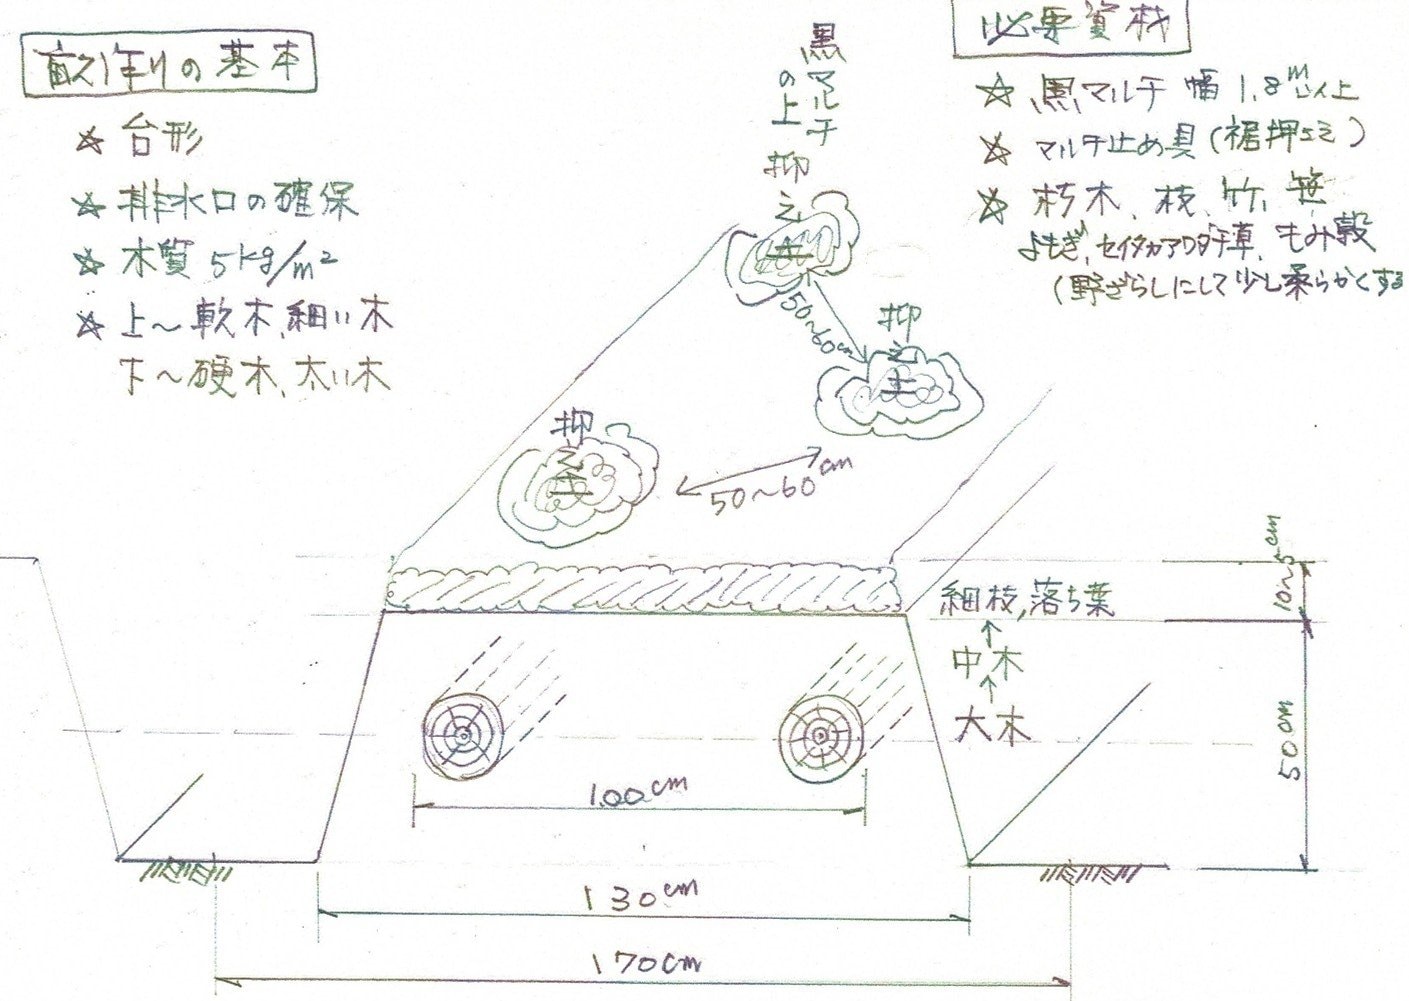 畝作りの基本
☆ 台形
☆ 排水口の確保
☆ 木質 5kg/m²
☆ 上～軟木、細い木
下～硬木、太い木
黒マルチ
の上
抑え土
50～60cm
抑え土
抑え土
50～60cm
必要資材
☆ 黒マルチ 幅 1.8m以上
☆ マルチ止め具(裾押さえ)
☆ 朽木、枝、竹、笹
よもぎ、セイタカアワダチ草、もみ殻
(野ざらしにして少し柔らかくする
細枝,落ち葉
↑
中木
↑
大木
10～5cm
50cm
100cm
130cm
170cm